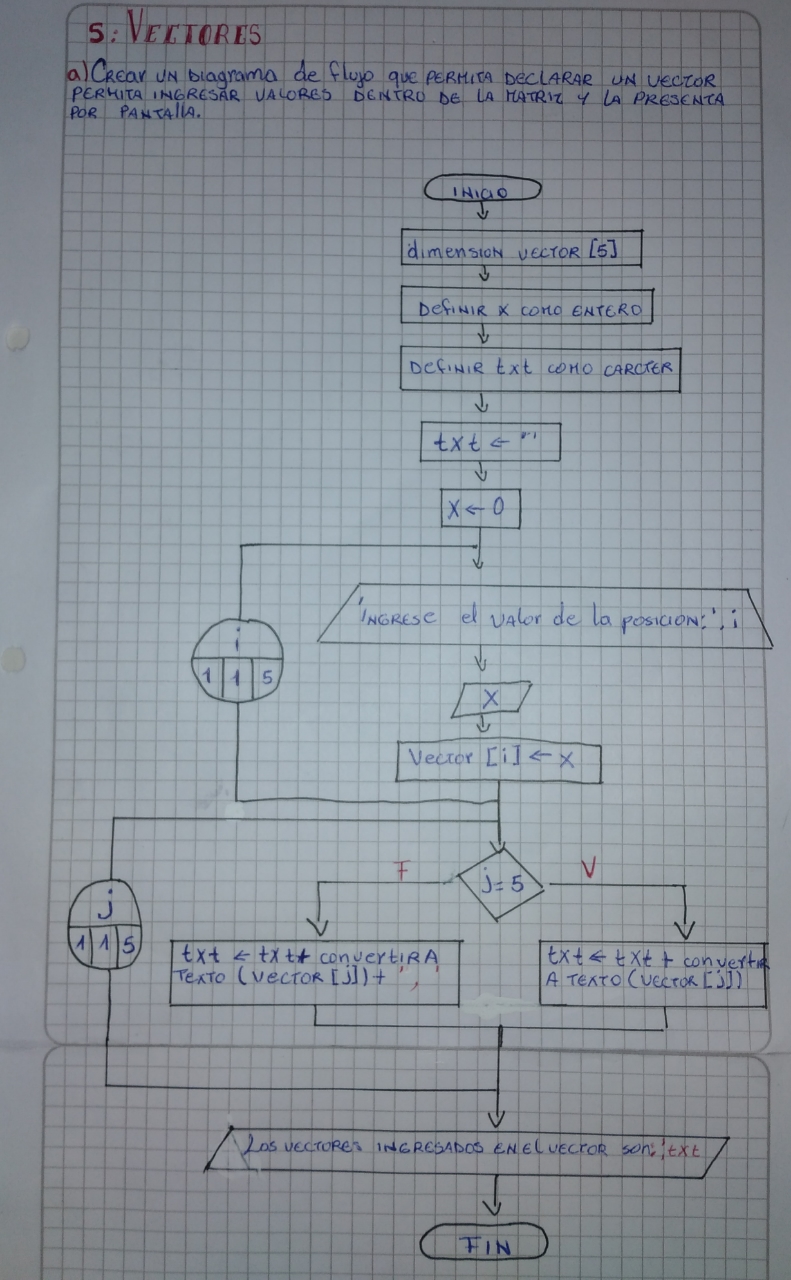 5: VECTORES
a) Crear UN Diagrama de flujo que PERMITA DECLARAR UN VECTOR
PERMITA INGRESAR VALORES DENTRO DE LA MATRIZ Y LA PRESENTA
POR PANTALLA.
INICIO
dimension VECTOR [5]
DEFINIR X COMO ENTERO
DEFINIR txt COMO CARCTER
txt ← ""
X ← 0
'INGRESE el VALOR de la POSICION:', i
i
1 1 5
X
Vector [i] ← X
F
j=5
V
j
1 1 5
txt ← txt + CONVERTIRA
TEXTO (VECTOR [j]) + ', '
txt ← txt + CONVERTIR
A TEXTO (VECTOR [j])
LOS VECTORES INGRESADOS EN El VECTOR SON:', txt
FIN